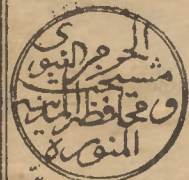 الحرم النبوى
مشيخت
ومحافظ المدينه
المنوره